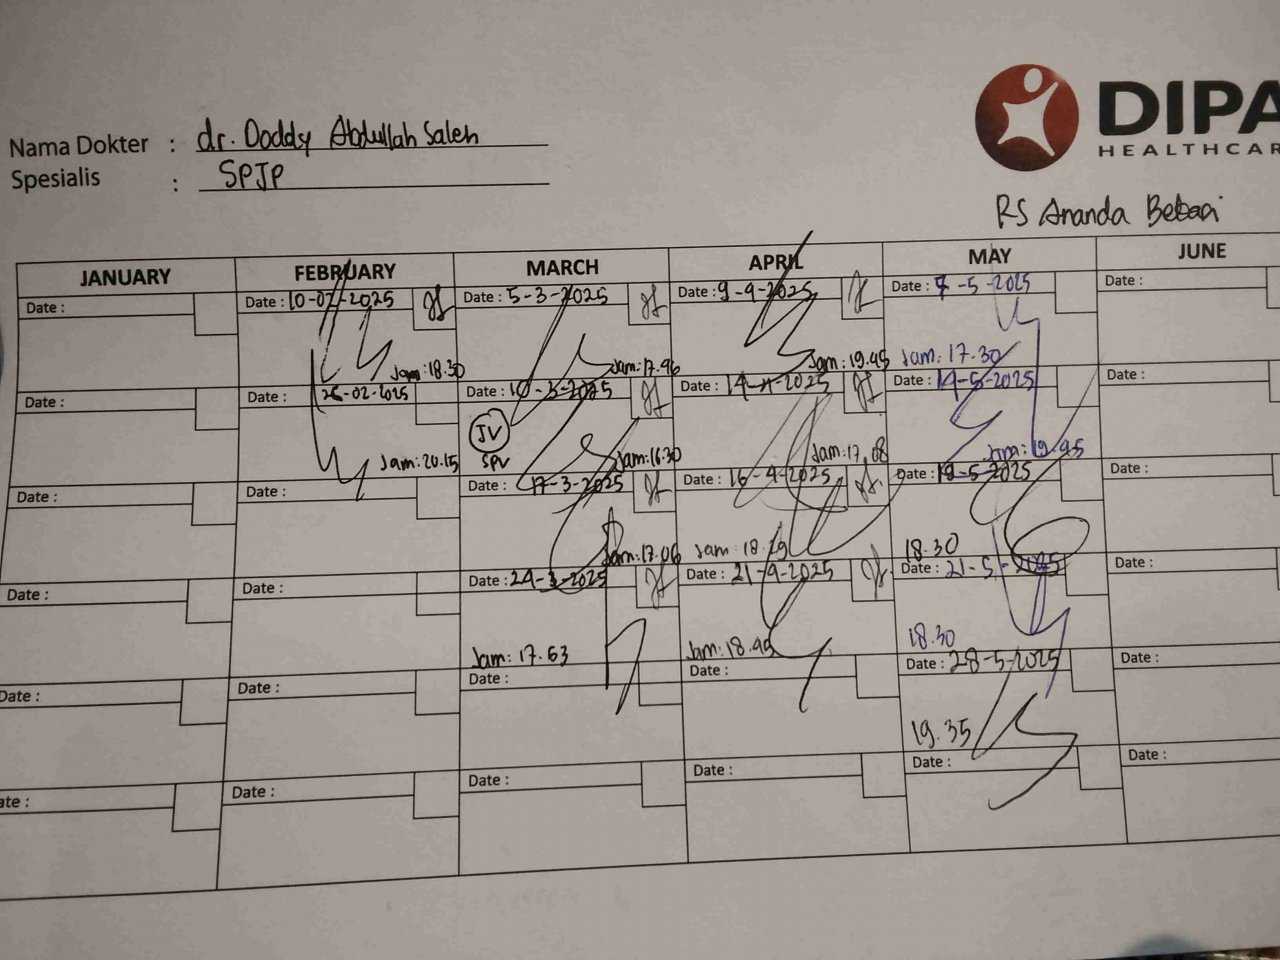 DIPA
HEALTHCAR
Nama Dokter : dr. Doddy Abdullah Saleh
Spesialis : SPJP
RS Ananda Bekasi
JANUARY FEBRUARY MARCH APRIL MAY JUNE
Date : Date : 10-02-2025 Date : 5-3-2025 Date : 9-4-2025 Date : 7-5-2025 Date :
Jam: 18.30 Jam: 17.46 Jam: 19.45 Jam: 17.30
Date : Date : 26-02-2025 Date : 10-3-2025 Date : 14-4-2025 Date : 14-5-2025 Date :
JV
SPV
Jam: 20.15 Jam: 16.30 Jam: 17.08 Jam: 19.45
Date : Date : Date : 17-3-2025 Date : 16-4-2025 Date : 19-5-2025 Date :
Jam: 17.06 Jam: 18.29 18.30
Date : Date : Date : 24-3-2025 Date : 21-4-2025 Date : 21-5-2025 Date :
Jam: 17.53 Jam: 18.45 18.30
Date : Date : Date : Date : Date : 28-5-2025 Date :
19.35
ate : Date : Date : Date : Date : Date :